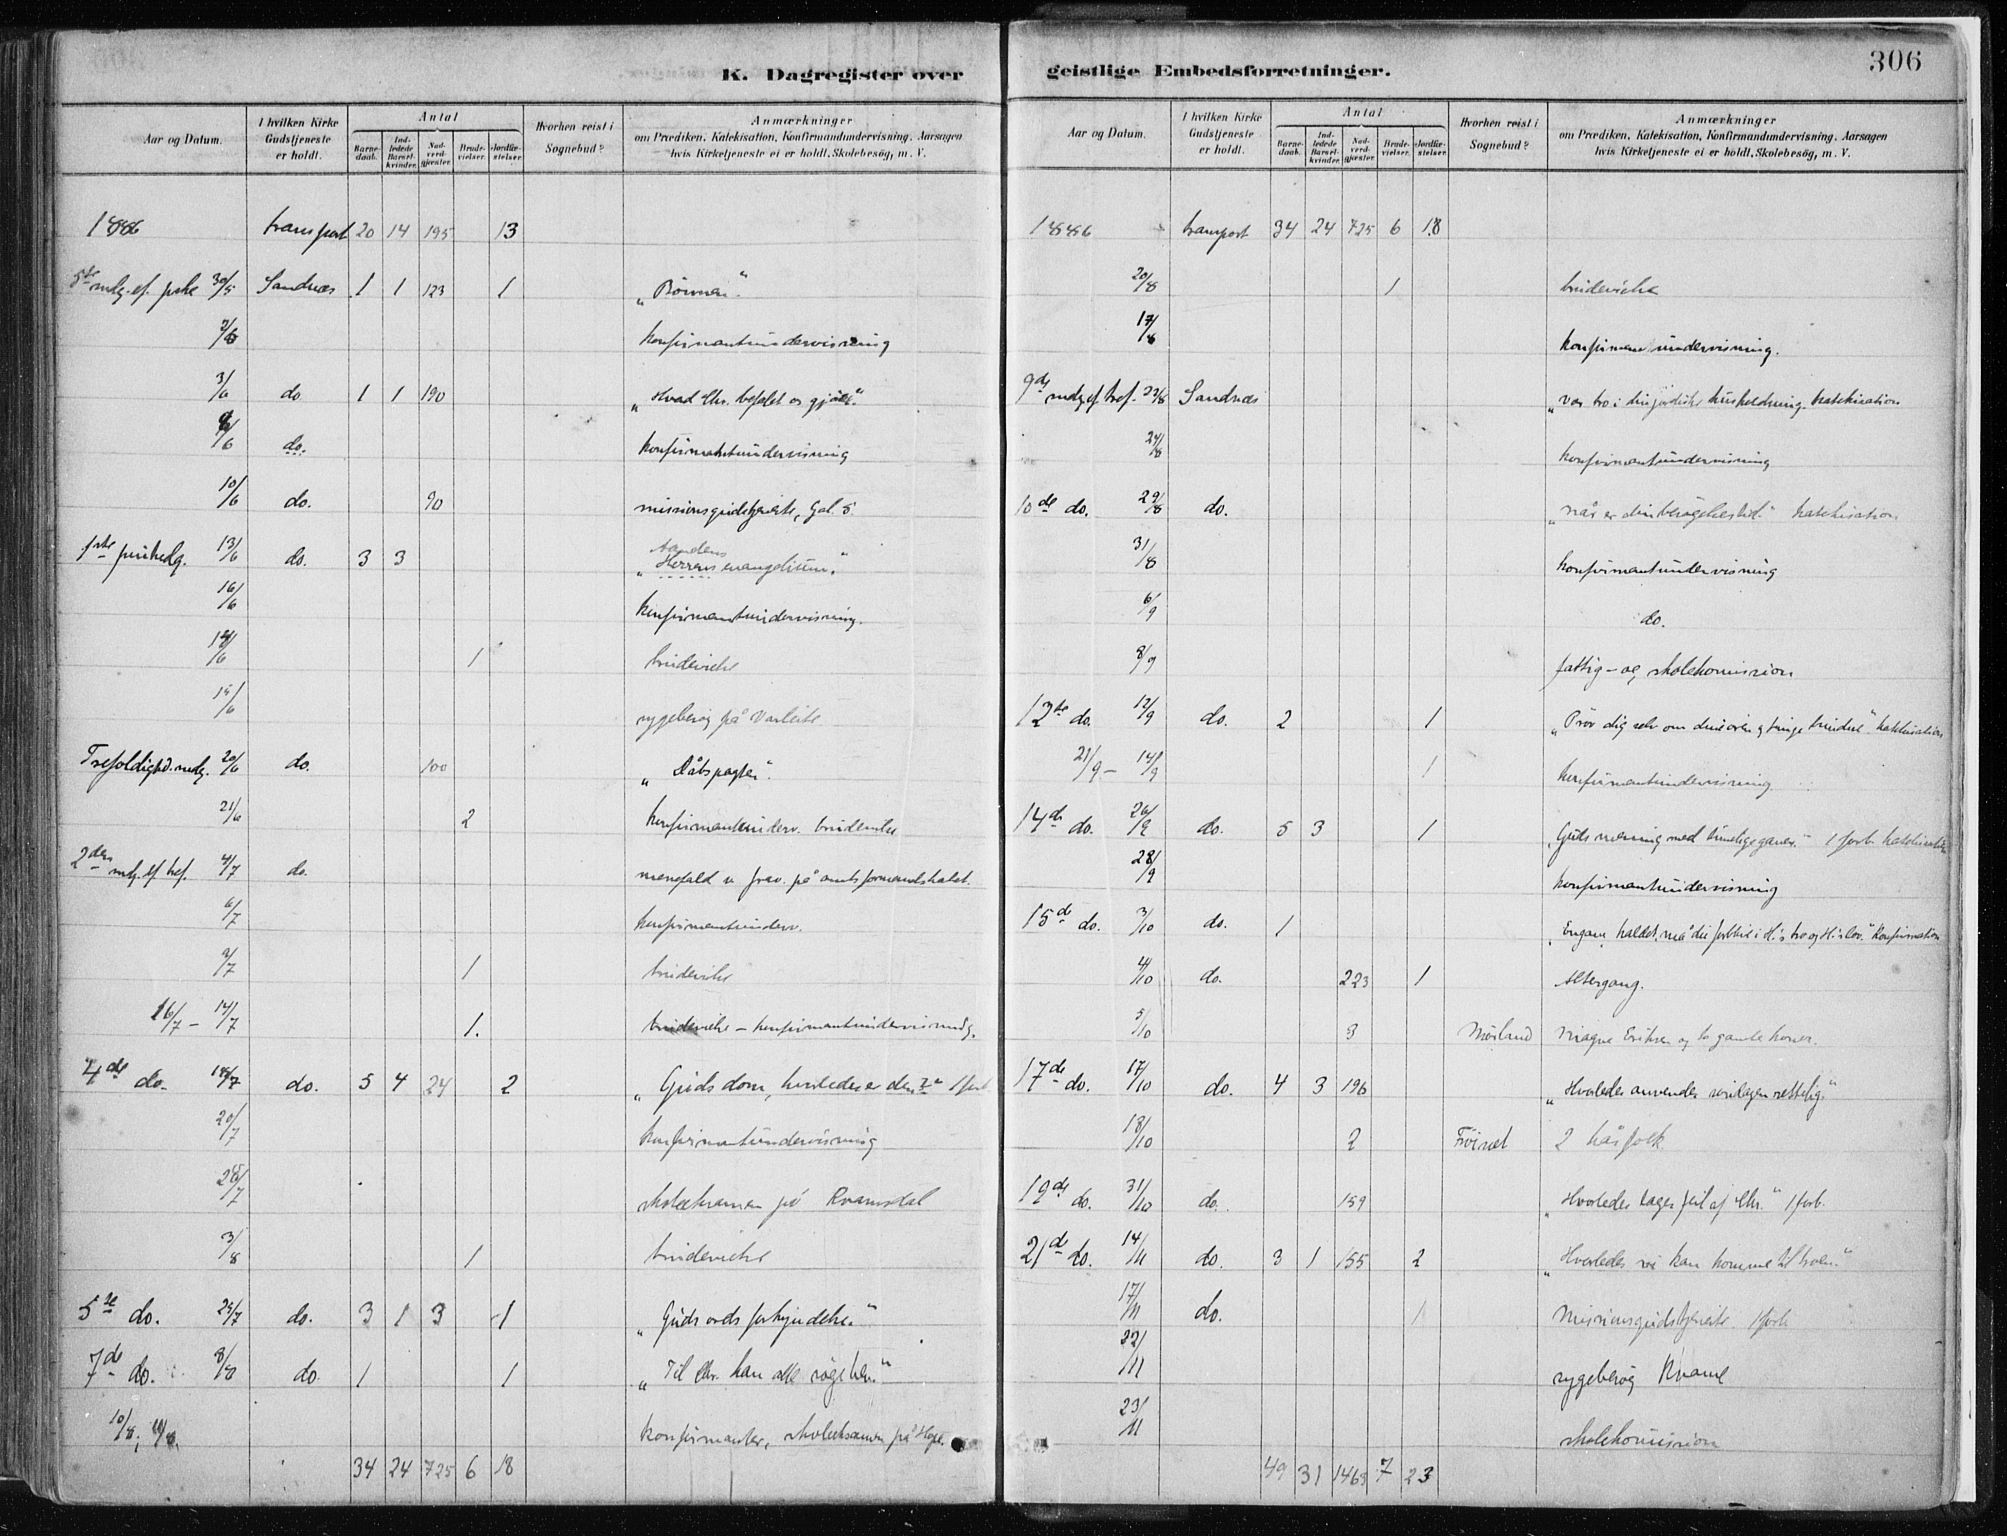 K. Dagregister over
Aar og Datum.
I hvilken Kirke Gudstjeneste er holdt.
Antal
Barnedaab.
Indledede Barselkvinder.
Nadverdgjæster.
Brudevielser.
Jordfæstelser.
Hvorhen reist i Sognebud?
Anmærkninger
om Prædiken, Katekisation, Konfirmandundervisning, Aarsagen
hvis Kirketjeneste ei er holdt, Skolebesøg, m. V.
1886 transport 20 14 195 13
5te ef. 30/5 Sandnæs 1 1 123 1
2/6 konfirmantundervisning
3/6 do 1 1 190 „Hvad Chr. befalet os
/6 do. konfirmantundervisning
10/6 do. 90 missionsgudstjeneste, Gal. 5
1ste 13/6 do. 3 3 „Herrens Aandens evangelium."
16/6 konfirmantundervisning.
/6 1 brudevielse
15/6 sygebesøg på
Trefoldighd. 20/6 do. 100 „Dåbspagten".
21/6 2 konfirmantunderv. brudevielse
2den ef tref. 4/7 do. på amtsformandskabet.
6/7 konfirmantunderv.
/7 1 brudevielse
16/7 – 14/7 1. brudevielse – konfirmantundervisning.
4de do. 18/7 do. 5 4 24 2 „Guds dom, hvorledes er den?" 1 forb.
20/7 konfirmantundervisning
/7 skoleeksamen på Kvamsdal
3/8 1 brudevielse
5te do. 25/7 do. 3 1 3 1 „Guds ords forkyndelse."
7de do. 8/8 do. 1 1 „Til Chr. kan alle søge hen."
10/8, konfirmanter, skoleeksamen på
34 24 725 6 18
geistlige Embedsforretninger.
306
Aar og Datum.
I hvilken Kirke Gudstjeneste er holdt.
Antal
Barnedaab.
Indledede Barselkvinder.
Nadverdgjæster.
Brudevielser.
Jordfæstelser.
Hvorhen reist i Sognebud?
Anmærkninger
om Prædiken, Katekisation, Konfirmandundervisning, Aarsagen
hvis Kirketjeneste ei er holdt, Skolebesøg, m. V.
1886 transport 34 24 725 6 18
20/8 1 brudevielse
17/8 konfirmantundervisning.
9de ef tref. 22/8 Sandnæs „Vær tro i din jordiske husholdning. katekisation
24/8 konfirmantundervisning
10de do. 29/8 do. „når er din besøgelsestid." katekisation
31/8 konfirmantundervisning
6/9 do.
8/9 fattig- og skolekomission
12te do. 12/9 do. 2 1 „Prøv dig selv om dine øren katekisation
21/9 – 14/9 1 konfirmantundervisning
14de do. 26/9 do. 5 3 1 Guds mening med timelige gaver." 1 forb. katekisation
28/9 konfirmantundervisning
15de do. 3/10 do. 1 konfirmation
4/10 do. 223 1 Altergang.
5/10 3 Mæland Magne Eriksen og to gamle koner.
17de do. 17/10 do. 4 3 196 „Hvorledes anvendes søndagen rettelig."
18/10 2 Frøiset 2
19de do. 31/10 do. 159 „Hvorledes tages feil af Chr." 1 forb.
21de do. 14/11 do. 3 1 155 2 „Hvorledes vi kan komme til troen."
17/11 do. 1 Missionsgudstjeneste. 1 forb
22/11 sygebesøg Kvame
23/11 skolekomission
49 31 1463 7 23